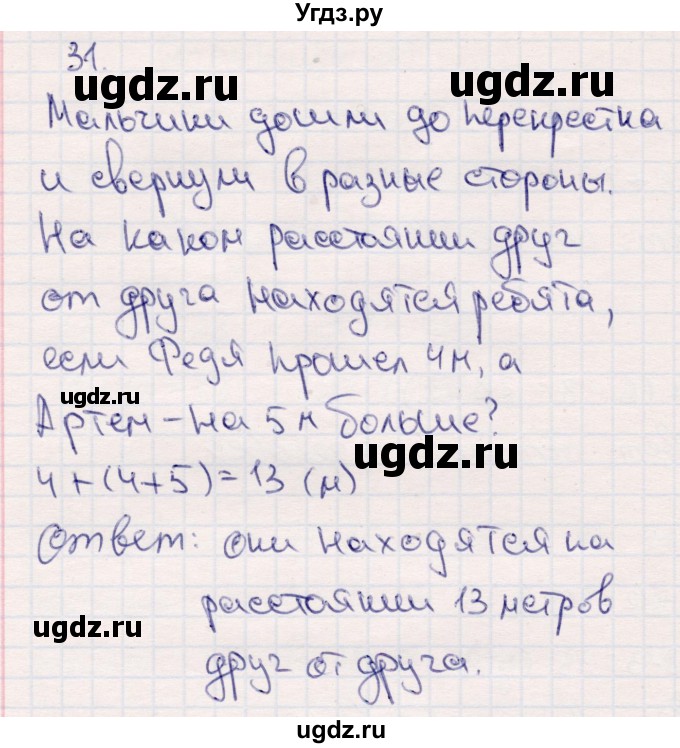 Угдз.ру
31.
ugdz.ru ugdz.ru
Мальчики дошли до перекрестка
и свернули в разные стороны.
На каком расстоянии друг
от друга находятся ребята,
если Федя прошел 4м, а
ugdz.ru
Артем – на 5 м больше?
ugdz.ru
4+(4+5)=13 (м)
Ответ: они находятся на
расстоянии 13 метров
ugdz.ru
друг от друга.
ugdz.ru